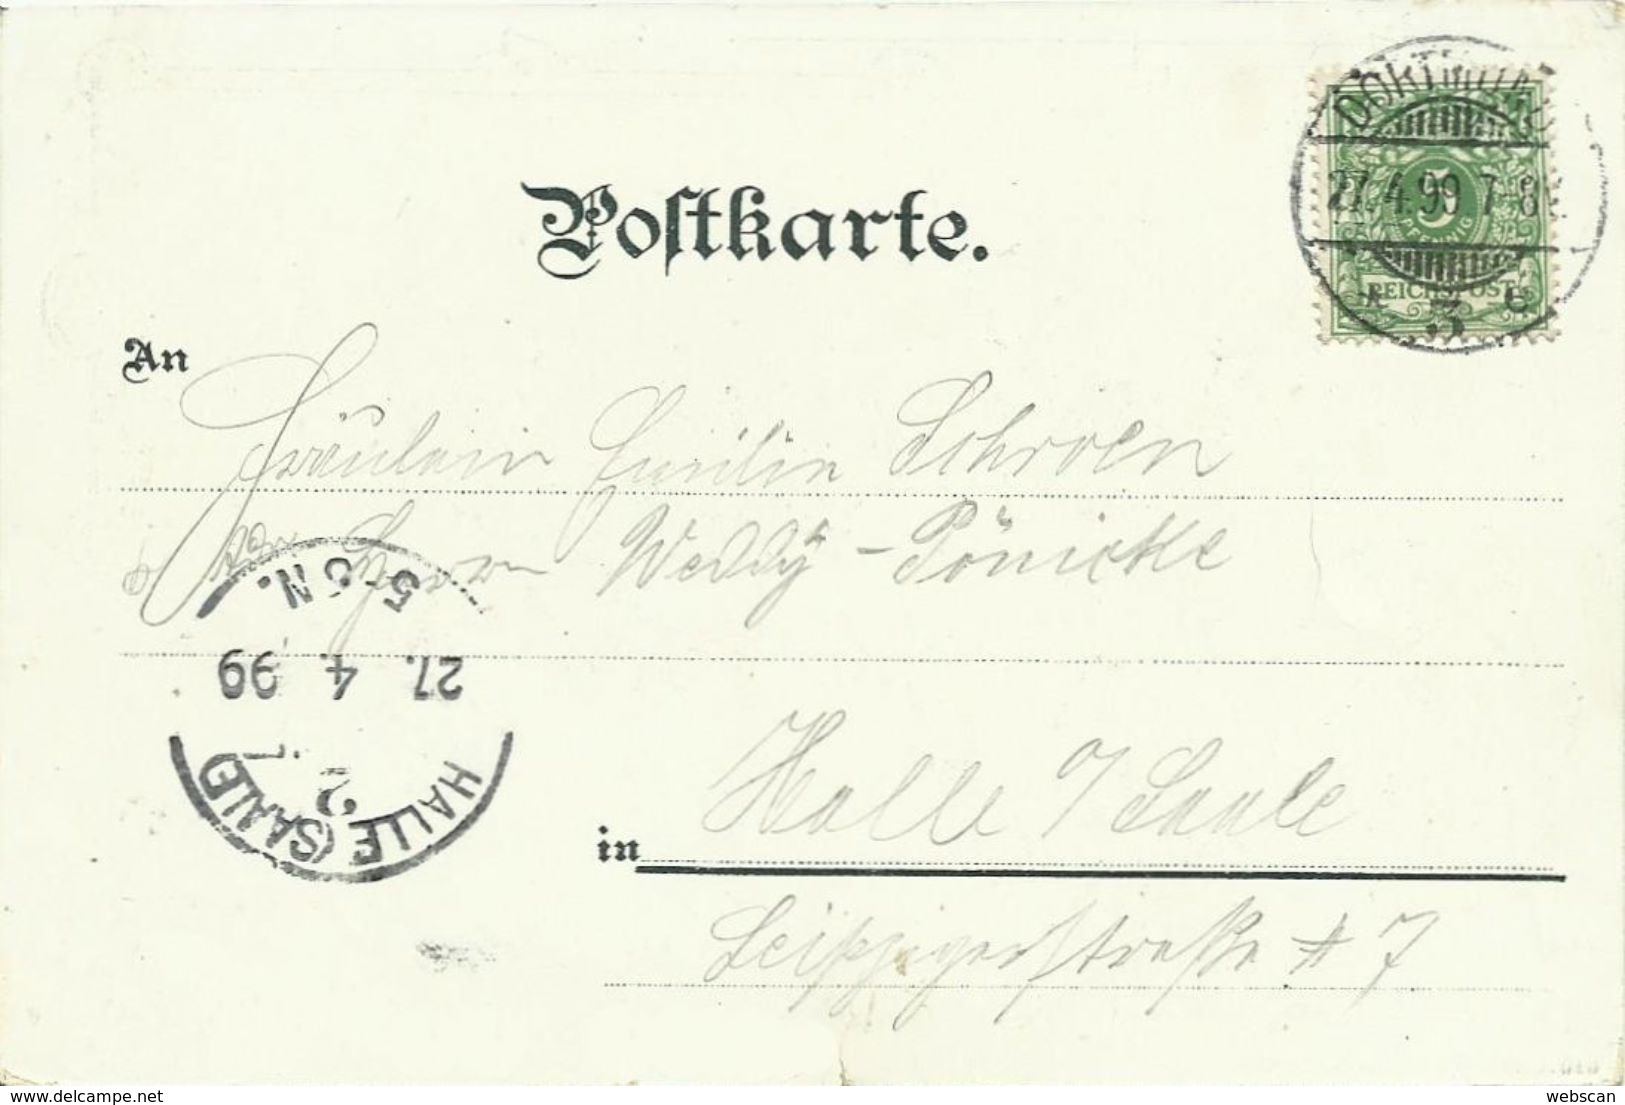 Postkarte.
DORTMUND
27.4.99 7-8
5
PFENNIG
REICHSPOST
* 3 c
An
Fräulein Emilie Schroen
Herrn Weddÿ-Pönicke
5-6 N.
27. 4. 99
2
HALLE (SAALE)
in Halle / Saale
Leipzigerstraße # 7
www.delcampe.net
webscan